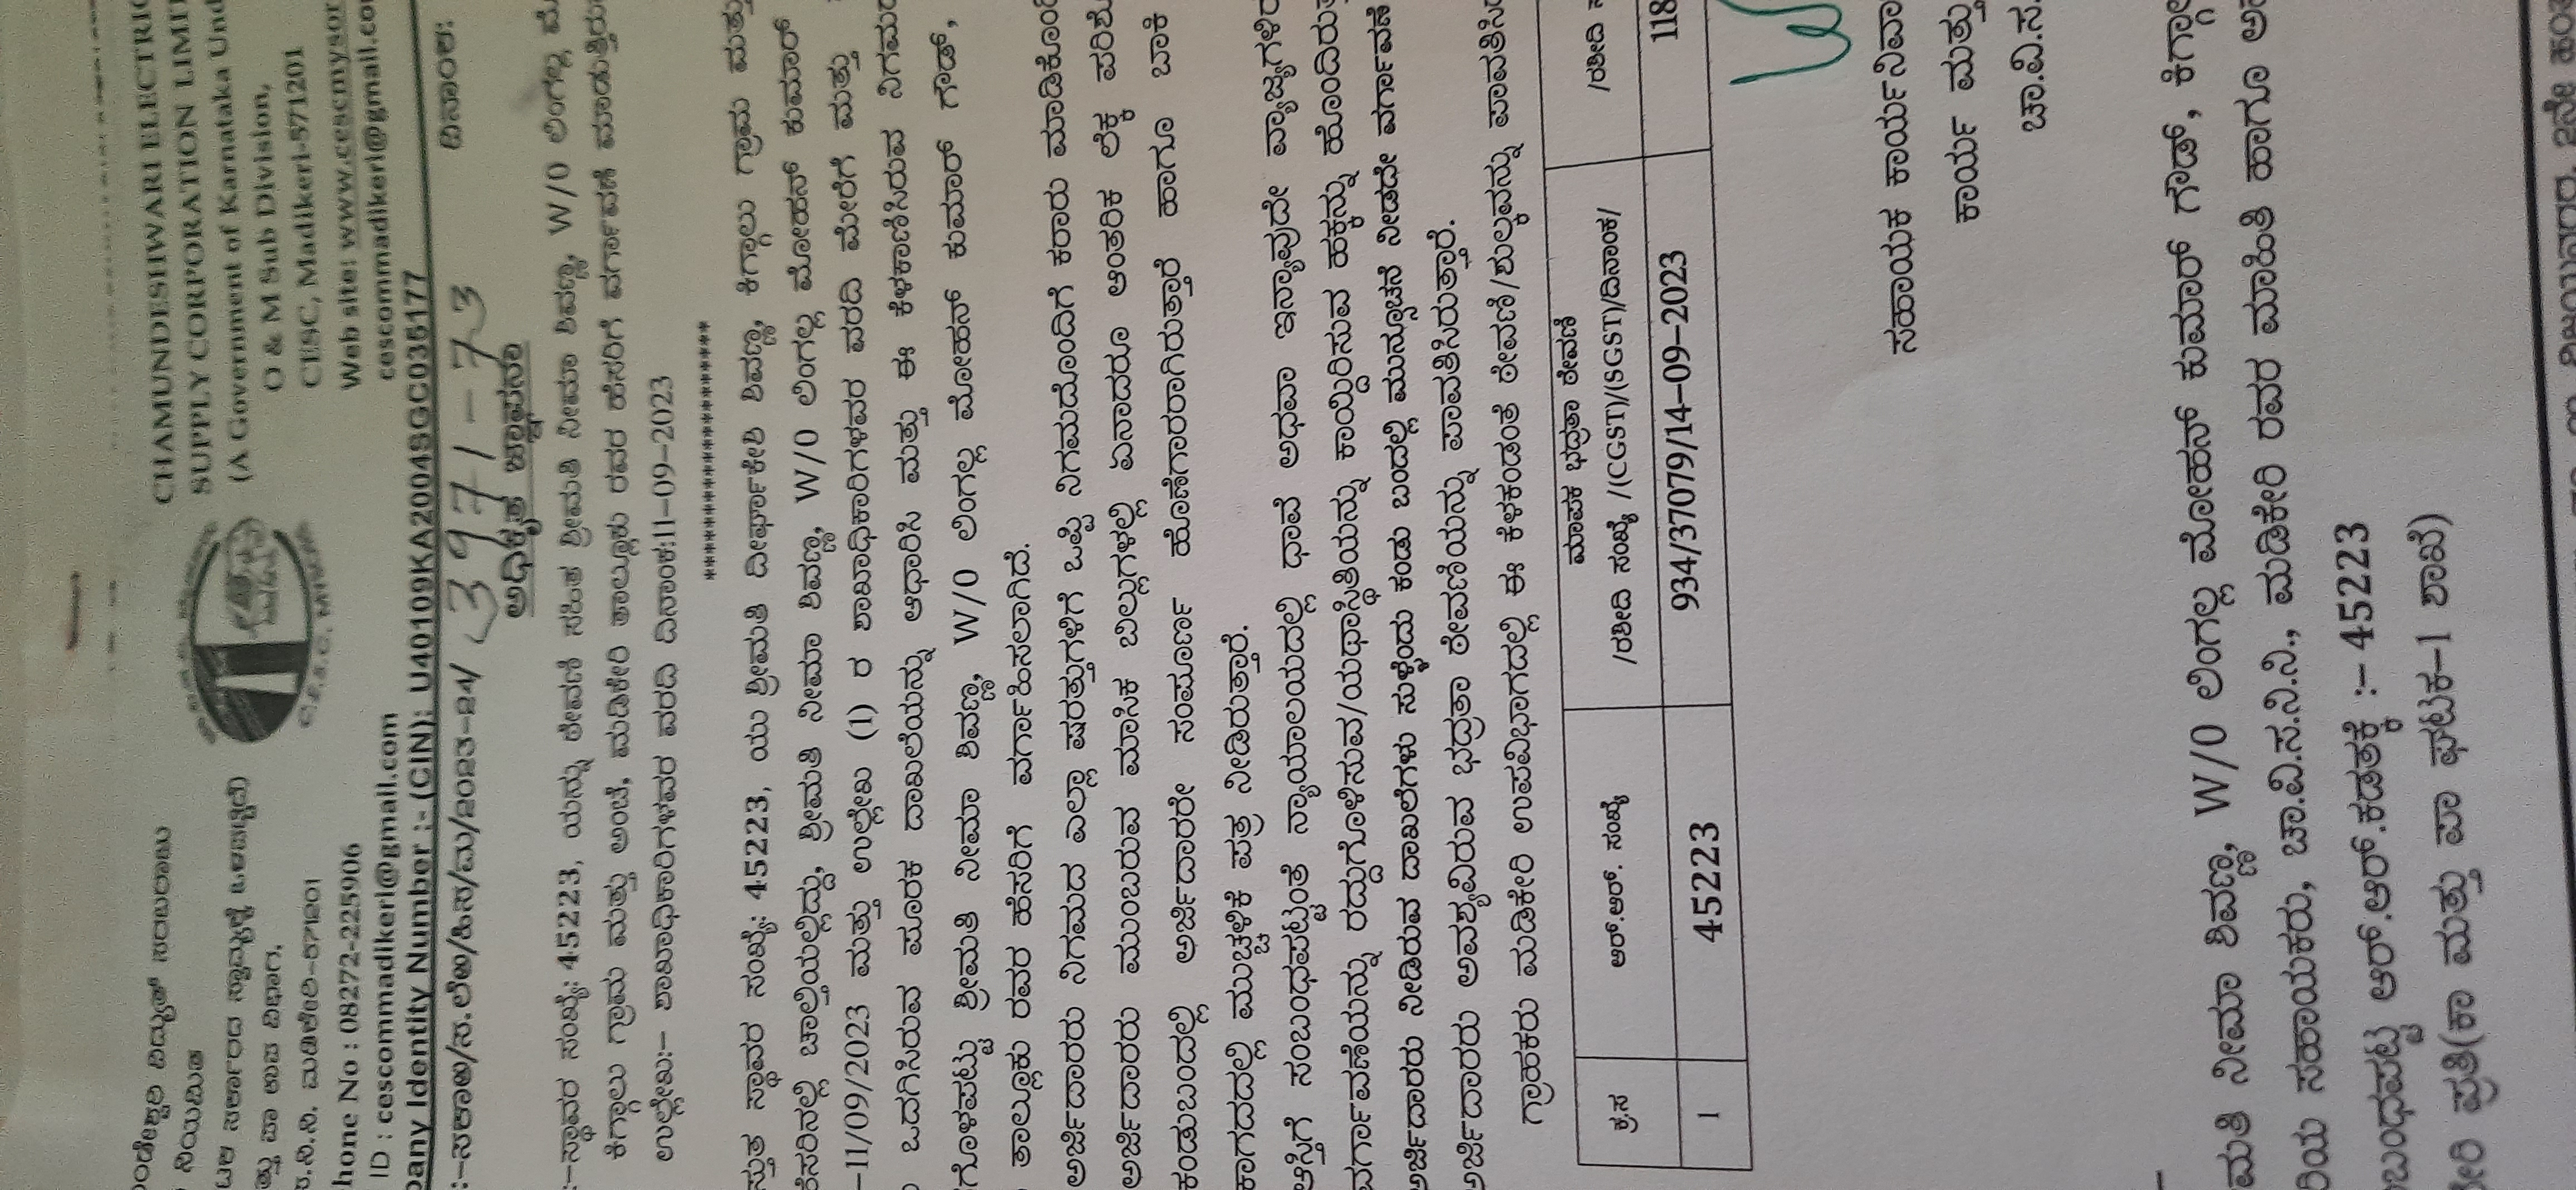 CHAMUNDESHWARI ELECTRIC
SUPPLY CORPORATION LIMIT
(A Government of Karnataka Und
O & M Sub Division,
CESC, Madikeri-571201
Web site: www.cescmysor
cescommadikeri@gmail.co
ಮತ್ತು ಪಾ ಉಪ ವಿಭಾಗ,
ಸ.ನಿ.ನಿ. ಮಡಿಕೇರಿ-571201
hone No : 08272-225906
ID : cescommadikeri@gmail.com
pany Identity Number :- (CIN): U40109KA2004SGC035177
:-ಸಕಾಅ/ಸ.ಲೆಅ/ಹಿಸ/ಮ/2023-24/ 3971-73 ದಿನಾಂಕ:
ಅಧಿಕೃತ ಜ್ಞಾಪನಾ
:-ಸ್ಥಾವರ ಸಂಖ್ಯೆ: 45223, ಯನ್ನು ಠೇವಣಿ ಸಹಿತ ಶ್ರೀಮತಿ ನೀಮಾ ಶಿವಣ್ಣ, W/0 ಲಿಂಗಲ್ಲ ಮೆ
ಕಿಗ್ಗಾಲು ಗ್ರಾಮ ಮತ್ತು ಅಂಚೆ, ಮಡಿಕೇರಿ ತಾಲ್ಲೂಕು ರವರ ಹೆಸರಿಗೆ ವರ್ಗಾವಣೆ ಮಾಡುತ್ತಿರು
ಉಲ್ಲೇಖ:- ಶಾಖಾಧಿಕಾರಿಗಳವರ ವರದಿ ದಿನಾಂಕ:11-09-2023
*********************
ಸ್ತುತ ಸ್ಥಾವರ ಸಂಖ್ಯೆ: 45223, ಯು ಶ್ರೀಮತಿ ದೀರ್ಘಾಕೇಶಿ ಶಿವಣ್ಣ, ಕಿಗ್ಗಾಲು ಗ್ರಾಮ ಮತ್ತು
ಹೆಸರಿನಲ್ಲಿ ಚಾಲ್ತಿಯಲ್ಲಿದ್ದು, ಶ್ರೀಮತಿ ನೀಮಾ ಶಿವಣ್ಣ, W/0 ಲಿಂಗಲ್ಲ ಮೋಹನ್ ಕುಮಾರ್
-11/09/2023 ಮತ್ತು ಉಲ್ಲೇಖ (1) ರ ಶಾಖಾಧಿಕಾರಿಗಳವರ ವರದಿ ಮೇರೆಗೆ ಮತ್ತು
ಒದಗಿಸಿರುವ ಪೂರಕ ದಾಖಲೆಯನ್ನು ಆಧಾರಿಸಿ ಮತ್ತು ಈ ಕೆಳಕಾಣಿಸಿರುವ ನಿಗಮ
ಗೊಳಪಟ್ಟು ಶ್ರೀಮತಿ ನೀಮಾ ಶಿವಣ್ಣ, W/0 ಲಿಂಗಲ್ಲ ಮೋಹನ್ ಕುಮಾರ್ ಗೌಡ್,
ತಾಲ್ಲೂಕು ರವರ ಹೆಸರಿಗೆ ವರ್ಗಾಹಿಸಲಾಗಿದೆ.
ಅರ್ಜಿದಾರರು ನಿಗಮದ ಎಲ್ಲಾ ಷರತ್ತುಗಳಿಗೆ ಒಪ್ಪಿ ನಿಗಮದೊಂದಿಗೆ ಕರಾರು ಮಾಡಿಕೊಂಡಿ
ಅರ್ಜಿದಾರರು ಮುಂಬರುವ ಮಾಸಿಕ ಬಿಲ್ಲುಗಳಲ್ಲಿ ಏನಾದರೂ ಆಂತರಿಕ ಲೆಕ್ಕ ಪರಿಶೆ
ಕಂಡುಬಂದಲ್ಲಿ ಅರ್ಜಿದಾರರೇ ಸಂಪೂರ್ಣ ಹೊಣೆಗಾರರಾಗಿರುತ್ತಾರೆ ಹಾಗೂ ಬಾಕಿ
ಕಾಗದದಲ್ಲಿ ಮುಚ್ಚಳಿಕೆ ಪತ್ರ ನೀಡಿರುತ್ತಾರೆ.
ಆಸ್ತಿಗೆ ಸಂಬಂಧಪಟ್ಟಂತೆ ನ್ಯಾಯಾಲಯದಲ್ಲಿ ಧಾವೆ ಅಥವಾ ಇನ್ಯಾವುದೇ ವ್ಯಾಜ್ಯಗಳಿ
ವರ್ಗಾವಣೆಯನ್ನು ರದ್ದುಗೊಳಿಸುವ/ಯಥಾಸ್ಥಿತಿಯನ್ನು ಕಾಯ್ದಿರಿಸುವ ಹಕ್ಕನ್ನು ಹೊಂದಿರು
ಅರ್ಜಿದಾರರು ನೀಡಿರುವ ದಾಖಲೆಗಳು ಸುಳ್ಳೆಂದು ಕಂಡು ಬಂದಲ್ಲಿ ಮುನ್ಸೂಚನೆ ನೀಡದೇ ವರ್ಗಾವಣೆ
ಅರ್ಜಿದಾರರು ಅವಶ್ಯವಿರುವ ಭದ್ರತಾ ಠೇವಣಿಯನ್ನು ಪಾವತಿಸಿರುತ್ತಾರೆ.
ಗ್ರಾಹಕರು ಮಡಿಕೇರಿ ಉಪವಿಭಾಗದಲ್ಲಿ ಈ ಕೆಳಕಂಡಂತೆ ಠೇವಣಿ/ಶುಲ್ಕವನ್ನು ಪಾವತಿಸಿ
ಕ್ರ.ಸ ಆರ್.ಆರ್. ಸಂಖ್ಯೆ ಮಾಪಕ ಭದ್ರತಾ ಠೇವಣಿ
/ರಶೀದಿ ಸಂಖ್ಯೆ /(CGST)/(SGST)/ದಿನಾಂಕ/ /ರಶೀದಿ
1 45223 934/37079/14-09-2023 118
ಸಹಾಯಕ ಕಾರ್ಯನಿವಾ
ಕಾರ್ಯ ಮತ್ತು
ಚಾ.ವಿ.ಸ.
ಮತಿ ನೀಮಾ ಶಿವಣ್ಣ, W/0 ಲಿಂಗಲ್ಲ ಮೋಹನ್ ಕುಮಾರ್ ಗೌಡ್, ಕಿಗ್ಗಾ
ರಿಯ ಸಹಾಯಕರು, ಚಾ.ವಿ.ಸ.ನಿ.ನಿ., ಮಡಿಕೇರಿ ರವರ ಮಾಹಿತಿ ಹಾಗೂ ಅ
ಬಂಧಪಟ್ಟ ಆರ್.ಆರ್.ಕಡತಕ್ಕೆ :- 45223
ಕೇರಿ ಪ್ರತಿ(ಕಾ ಮತ್ತು ಪಾ ಘಟಕ-1 ಶಾಖೆ)